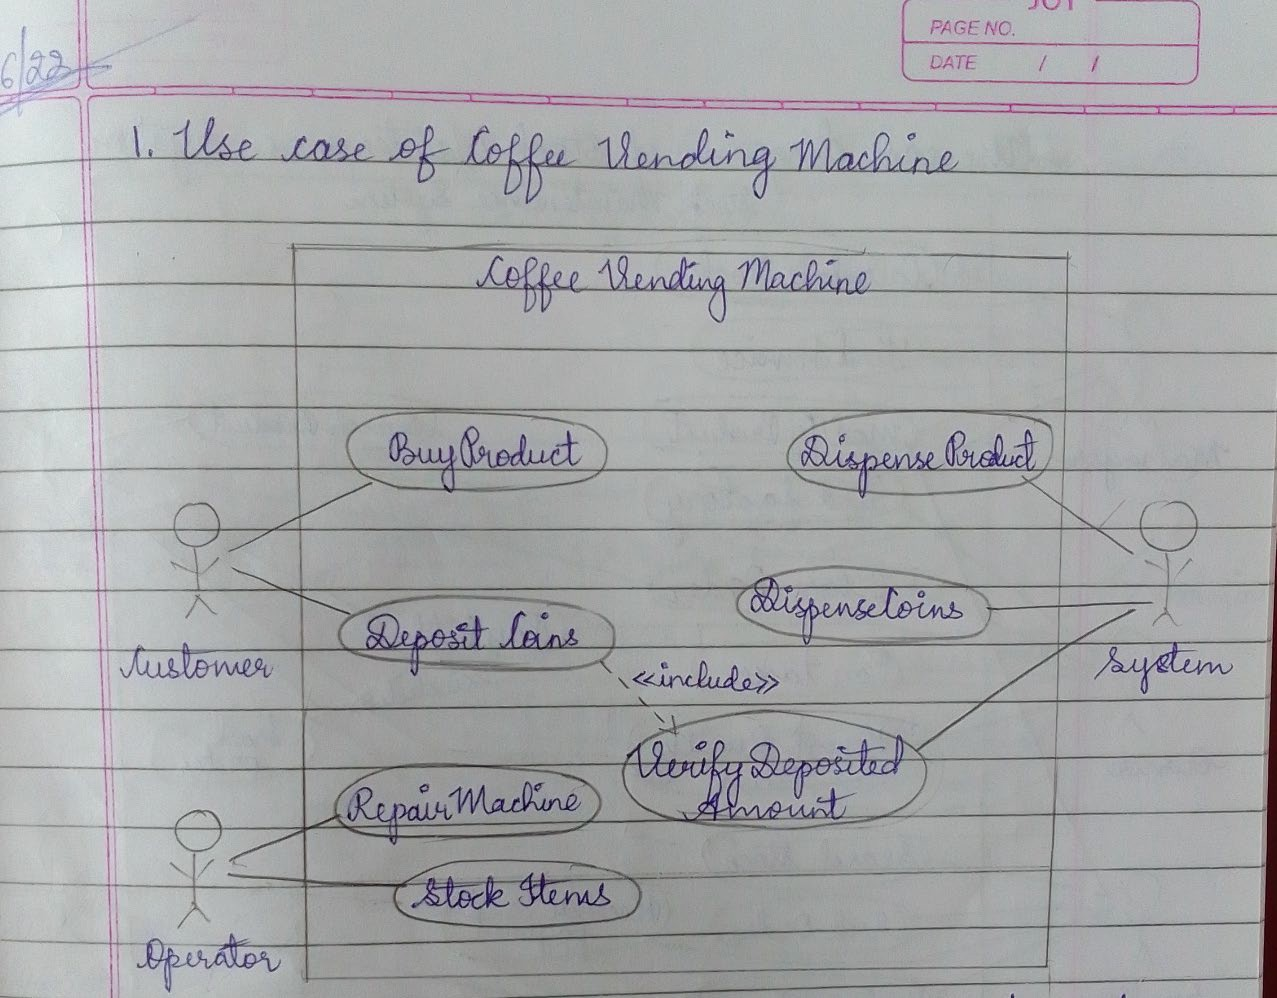 JOY
PAGE NO.
DATE / /
6/22
1. Use case of Coffee Vending Machine
Coffee Vending Machine
Buy Product
Dispense Product
Deposit Coins
Dispense Coins
Customer
<<include>>
System
Verify Deposited
Amount
Repair Machine
Stock Items
Operator